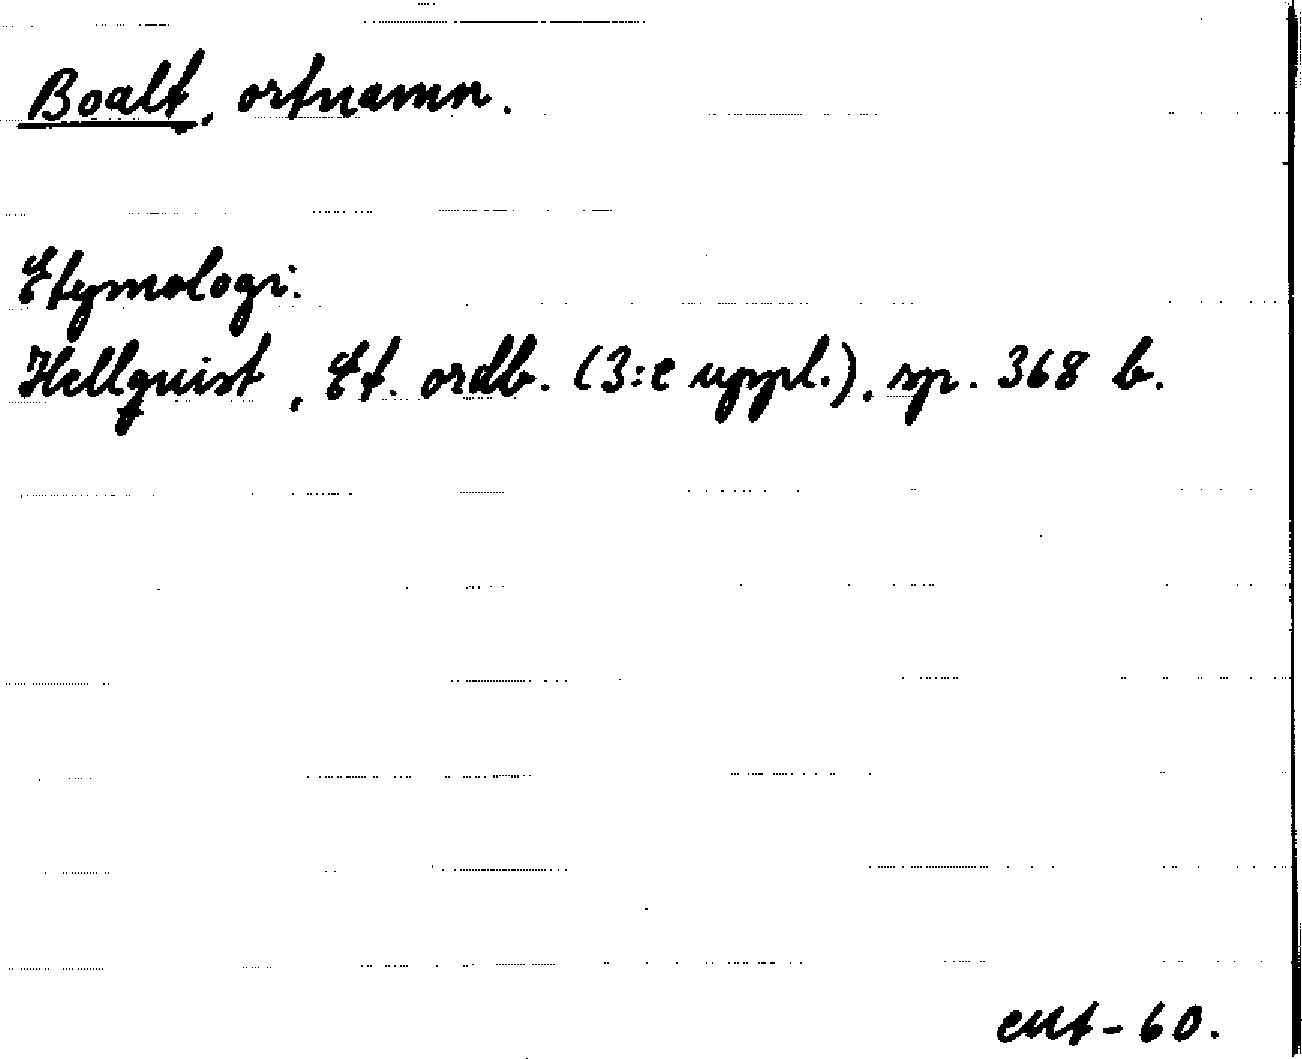 Boalt, ortnamn.
Etymologi:
Hellquist, Et. ordb. (3:e uppl.), sp. 368 b.
- 60.